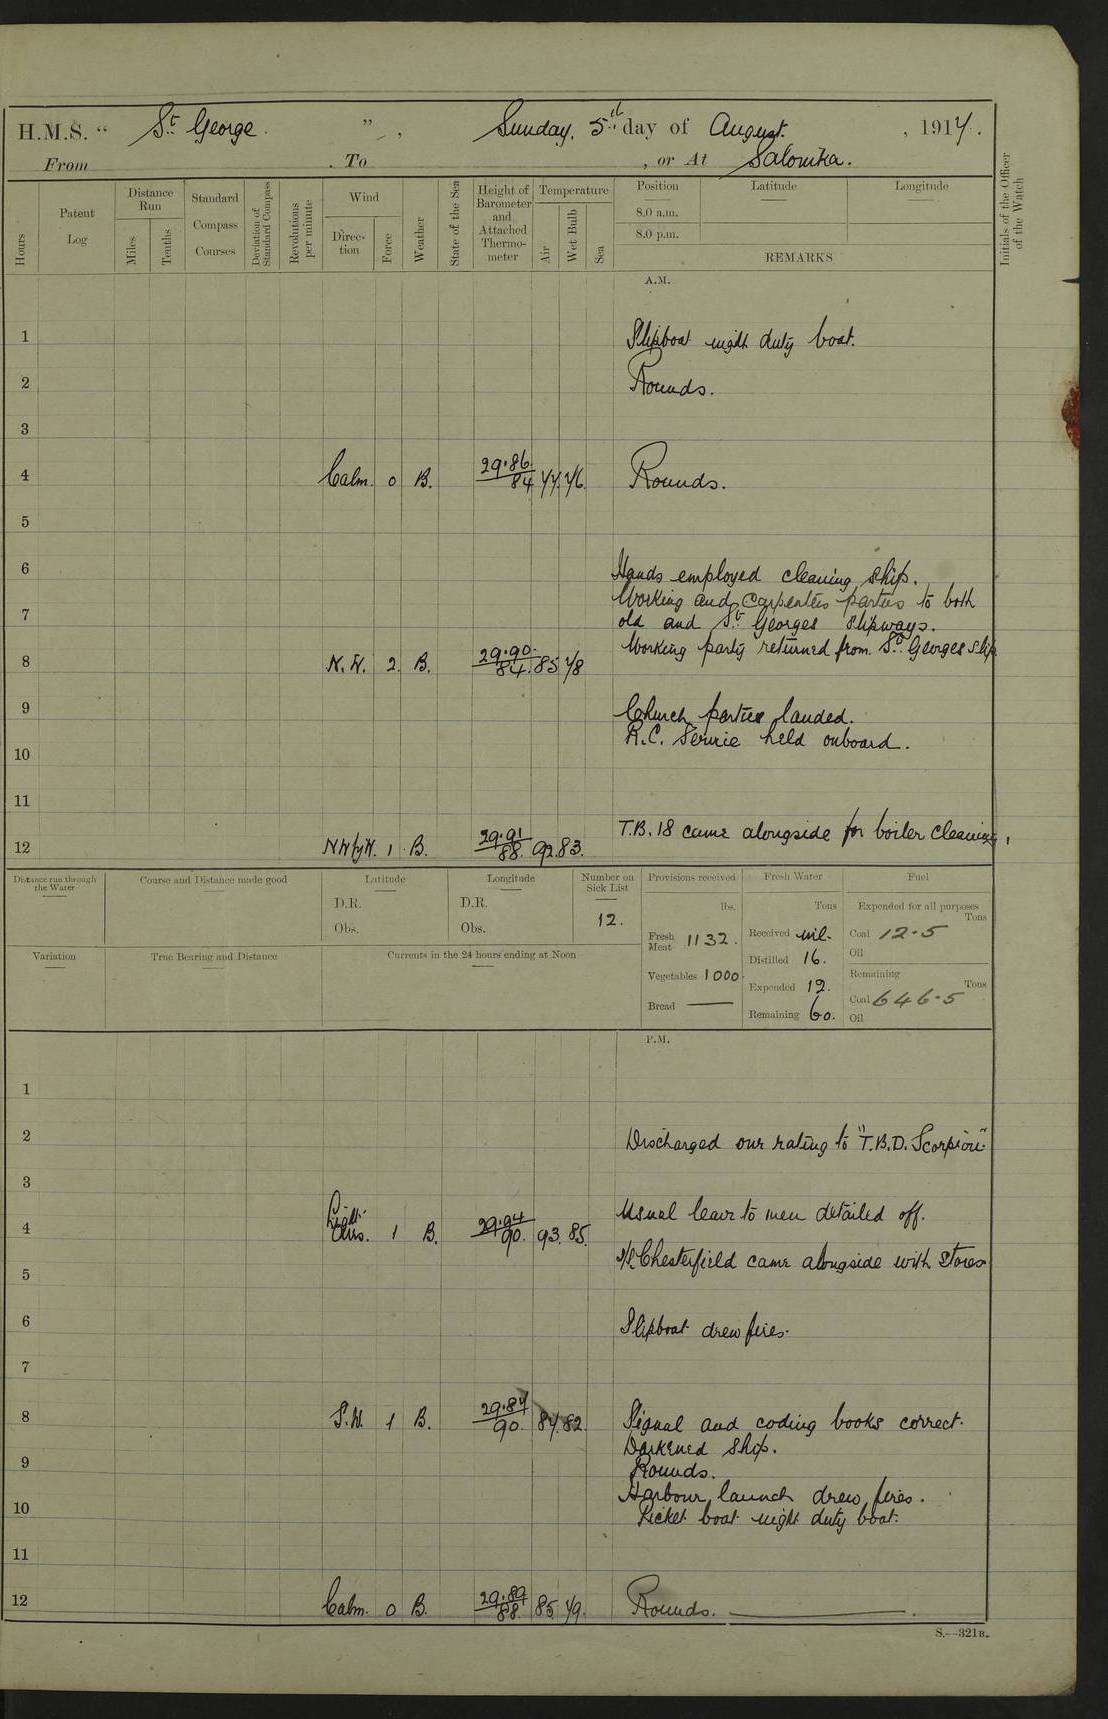 H.M.S. “ St George. ” , Sunday, 5th day of August. , 1917.
From . To , or At Salonika.
Hours
Patent Log
Distance Run
Miles
Tenths
Standard Compass Courses
Deviation of Standard Compass
Revolutions per minute
Wind
Direc-tion
Force
Weather
State of the Sea
Height of Barometer and Attached Thermo-meter
Temperature
Air
Wet Bulb
Sea
Position Latitude Longitude
8.0 a.m.
8.0 p.m.
REMARKS
Initials of the Officer of the Watch
A.M.
1 Slipboat night duty boat.
2 Rounds.
3
4 Calm. 0 B. 29.86/84 77. 76. Rounds.
5
6 Hands employed cleaning ship.
Working and Carpenters parties to both
7 old and St Georges slipways.
Working party returned from St Georges slip
8 N.W. 2. B. 29.90./84. 85 78
9 Church parties landed.
R.C. Service held onboard.
10
11
T.B. 18 came alongside for boiler cleaning.
12 NWbyW. 1 B. 29.91/88. 92. 83.
Distance run through the Water
Course and Distance made good
Latitude
D.R.
Obs.
Longitude
D.R.
Obs.
Number on Sick List
12.
Provisions received
lbs.
Fresh Meat 1132.
Vegetables 1000.
Bread —
Fresh Water
Tons
Received nil.
Distilled 16.
Expended 12.
Remaining 60.
Fuel
Expended for all purposes
Tons
Coal 12.5
Oil
Remaining
Tons
Coal 646.5
Oil
Variation
True Bearing and Distance
Currents in the 24 hours ending at Noon
P.M.
1
2 Discharged one rating to "T.B.D. Scorpion"
3
Usual leave to men detailed off.
4 Light Airs. 1 B. 29.94/90. 93. 85.
Chesterfield came alongside with stores
5
6 Slipboat drew fires.
7
8 S.W. 1 B. 29.87/90. 87. 82. Signal and coding books correct.
Darkened ship.
9 Rounds.
Harbour launch drew fires.
10 Picket boat night duty boat.
11
12 Calm. 0 B. 29.89/88. 85 79. Rounds.
S.—321B.